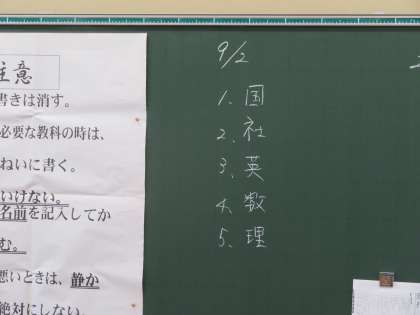 注意
書きは消す。
必要な教科の時は、
ねいに書く。
いけない。
名前を記入してか
む。
悪いときは、静か
絶対にしない。
9/2
1. 国
2. 社
3. 英
4. 数
5. 理